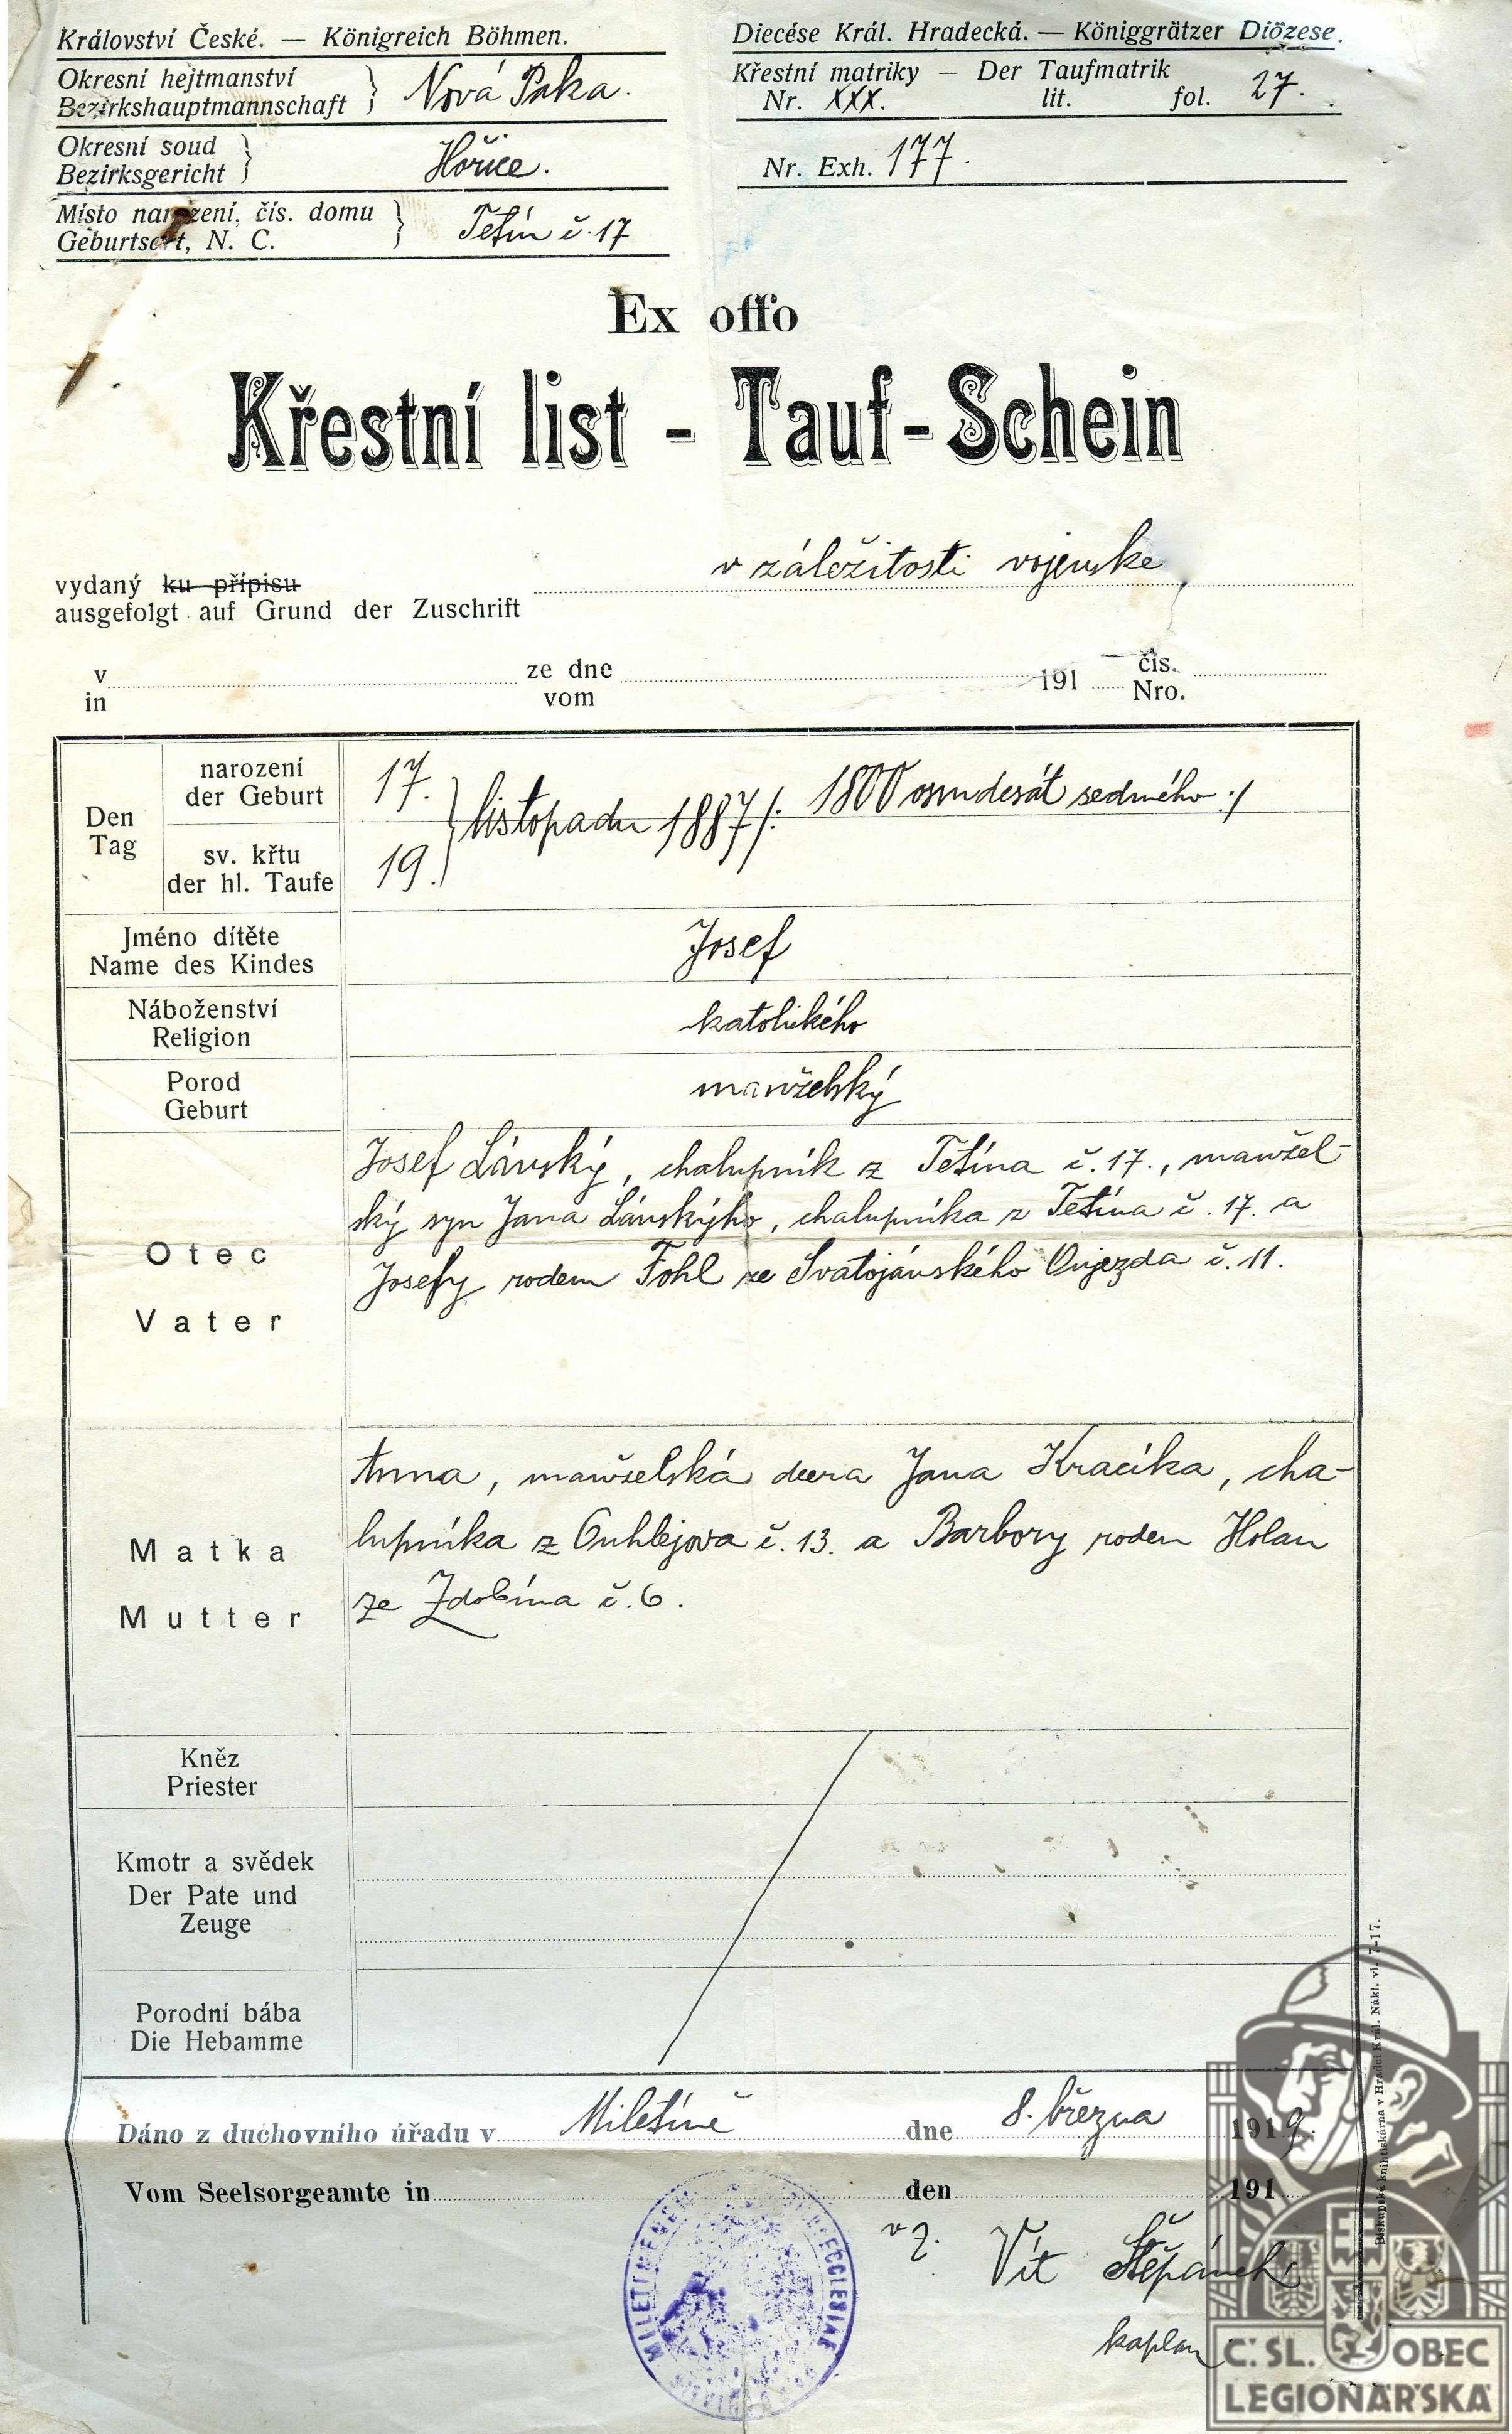 Království České. — Königreich Böhmen.
Okresní hejtmanství
Bezirkshauptmannschaft } Nová Paka.
Okresní soud
Bezirksgericht } Hořice.
Místo narození, čís. domu
Geburtsort, N. C. } Tetín č. 17
Diecése Král. Hradecká. — Königgrätzer Diözese.
Křestní matriky — Der Taufmatrik
Nr. XXX. lit. fol. 27.
Nr. Exh. 177.
Ex offo
Křestní list - Tauf-Schein
v záležitosti vojenské
vydaný ku přípisu
ausgefolgt auf Grund der Zuschrift
v ze dne 191 čís.
in vom Nro.
Den
Tag
narození
der Geburt
17.
sv. křtu
der hl. Taufe
19.
listopadu 1887 /: 1800 osmdesát sedmého :/
Jméno dítěte
Name des Kindes
Josef
Náboženství
Religion
katolického
Porod
Geburt
manželský
Otec
Vater
Josef Lánský, chalupník z Tetína č. 17., manžel-
ský syn Jana Lánskýho, chalupníka z Tetína č. 17. a
Josefy rodem Fohl ze Svatojánského Oujezda č. 11.
Matka
Mutter
Anna, manželská dcera Jana Kracíka, cha-
lupníka z Ouhlejova č. 13. a Barbory rodem Holan
ze Zdobína č. 6.
Kněz
Priester
Kmotr a svědek
Der Pate und
Zeuge
Porodní bába
Die Hebamme
Dáno z duchovního úřadu v Miletíně dne 8. března 1919.
Vom Seelsorgeamte in den 191
v z. Vít Štěpánek
kaplan
Biskupská knihtiskárna v Hradci Král. Nákl. vl. 7-17.
Č. SL. OBEC
LEGIONÁŘSKÁ